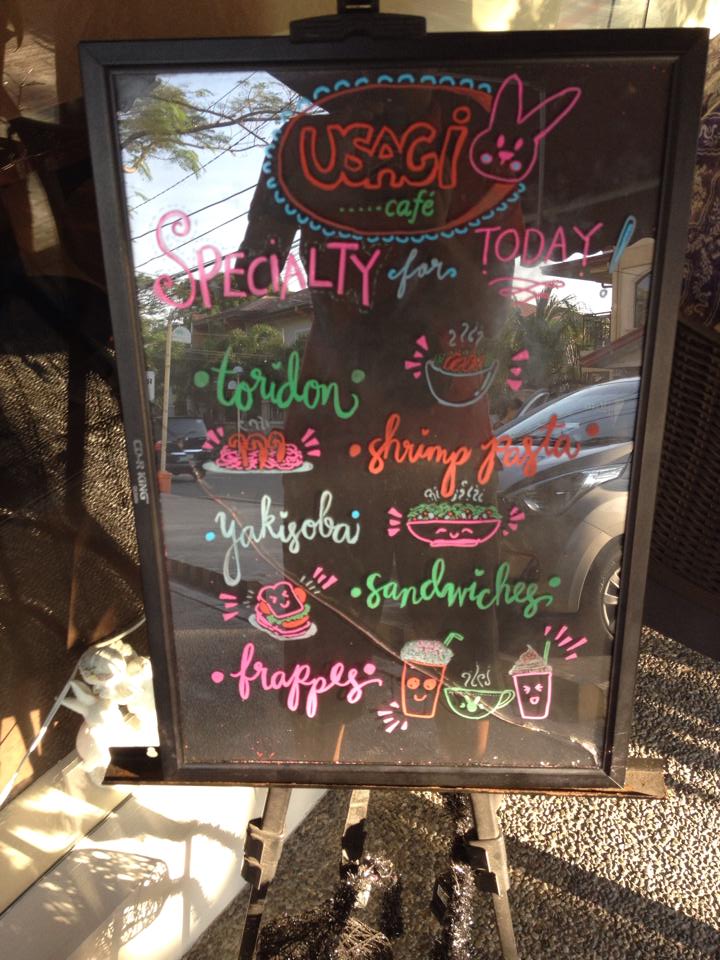 USAGi
.....café
SPECIALTY for TODAY!
• toridon •
• shrimp pasta •
• yakisoba •
• sandwiches •
• frappes •